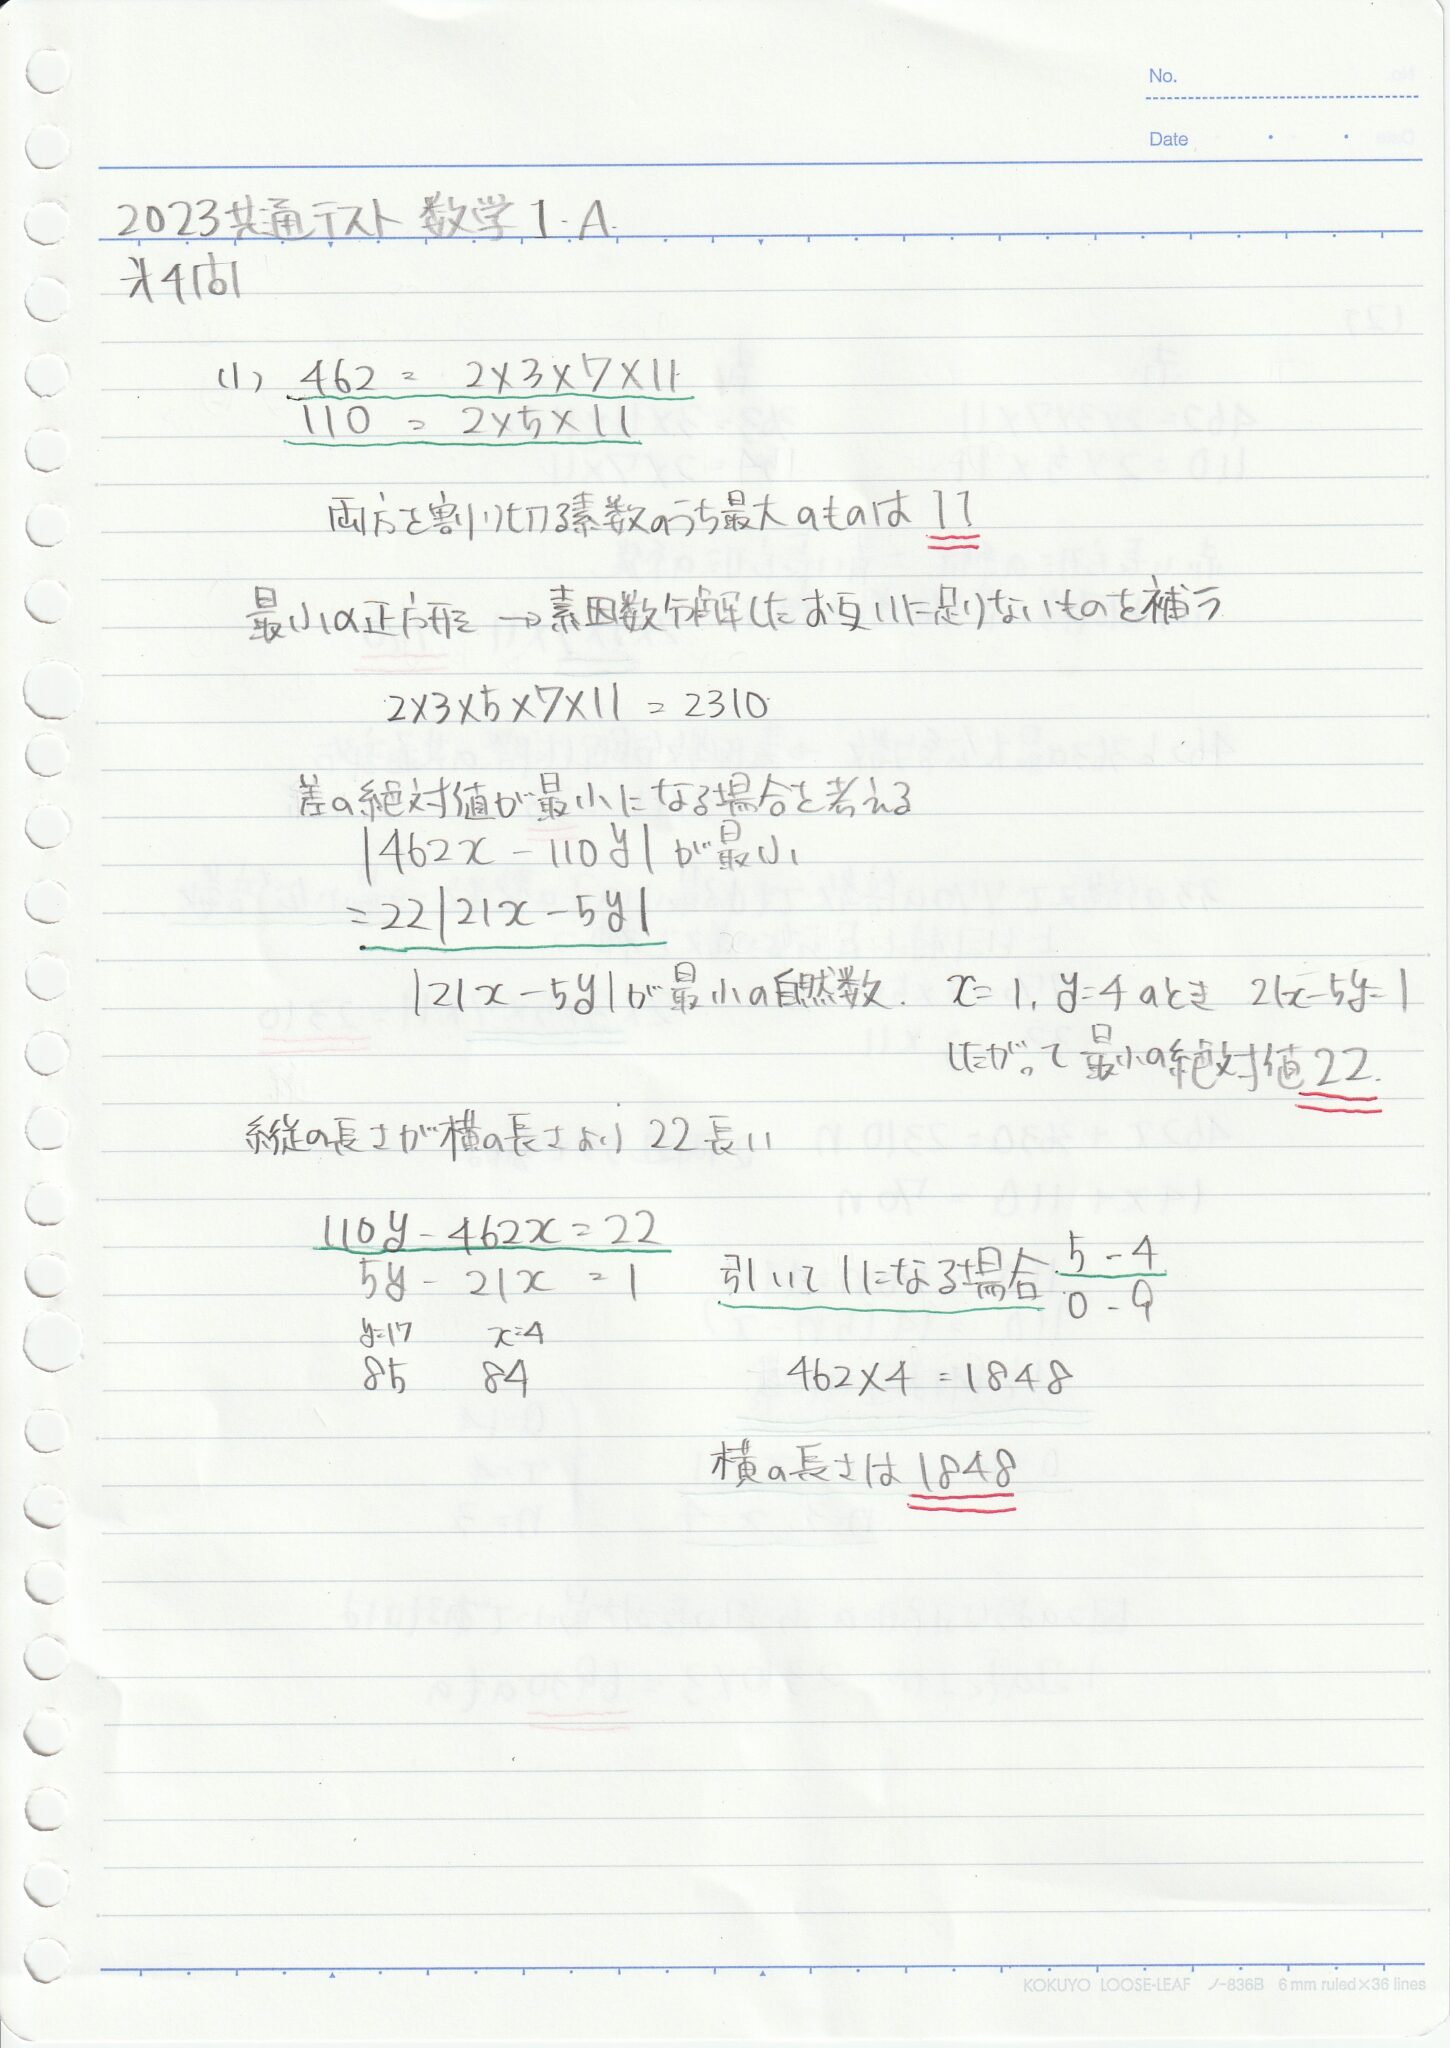 No.
Date
2023共通テスト 数学1.A.
第4問
(1) 462 = 2×3×7×11
110 = 2×5×11
両方を割り切る素数のうち最大のものは 11
最小の正方形 → 素因数分解したお互いに足りないものを補う
2×3×5×7×11 = 2310
差の絶対値が最小になる場合を考える
|462x - 110y| が最小
= 22|21x - 5y|
|21x - 5y| が最小の自然数. x=1, y=4のとき 21x-5y=1
したがって最小の絶対値22.
縦の長さが横の長さより 22長い
110y - 462x = 22
5y - 21x = 1 引いて1になる場合 5 - 4
0 - 9
y=17 x=4
85 84 462×4 = 1848
横の長さは 1848
KOKUYO LOOSE-LEAF ノ-836B 6 mm ruled×36 lines